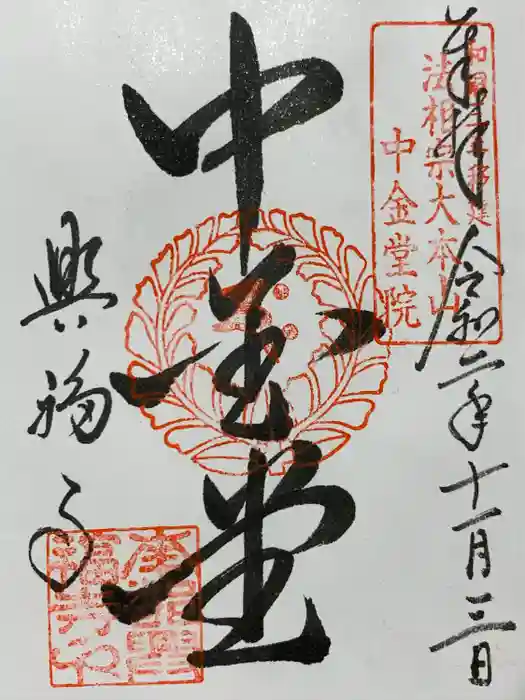 奉拝 令和二年十一月三日
法相宗大本山
中金堂院
中金堂
興福寺